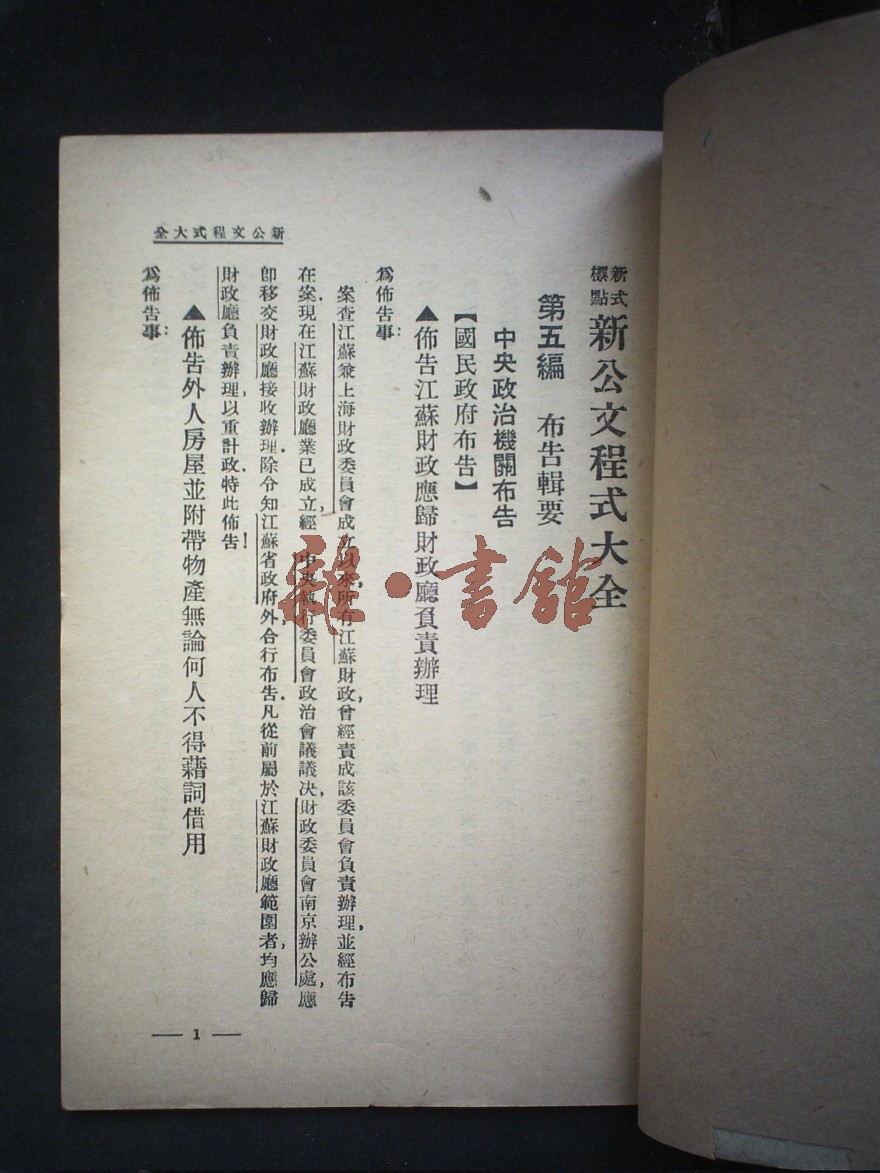 新式標點 新公文程式大全
第五編 布告輯要
中央政治機關布告
【國民政府布告】
▲佈告江蘇財政應歸財政廳負責辦理
爲佈告事:
案查江蘇兼上海財政委員會成立以來,所有江蘇財政,曾經責成該委員會負責辦理,並經布告
在案.現在江蘇財政廳業已成立,經 中央執行委員會政治會議議決,財政委員會南京辦公處,應
卽移交財政廳接收辦理.除令知江蘇省政府外,合行布告.凡從前屬於江蘇財政廳範圍者,均應歸
財政廳負責辦理,以重計政.特此佈告!
▲佈告外人房屋並附帶物產無論何人不得藉詞借用
爲佈告事:
新公文程式大全
— 1 —
雜·書館